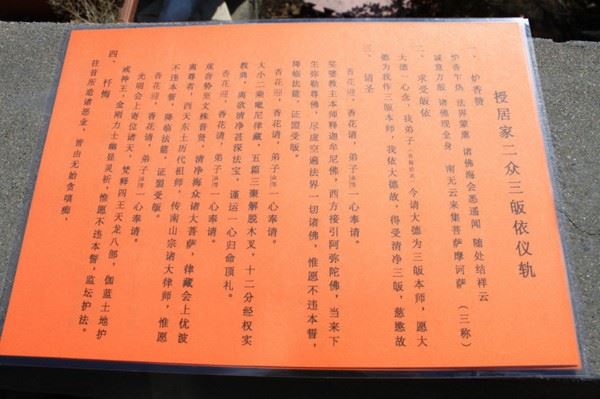 授居家二众三皈依仪轨
一、炉香赞
炉香乍热 法界蒙熏 诸佛海会悉遥闻 随处结祥云
诚意方殷 诸佛现全身 南无云来集菩萨摩诃萨 （三称）
二、求受皈依
大德一心念，我弟子 今请大德为三皈本师，愿大
德为我作三皈本师，我依大德故，得受清净三皈，慈愍故
三、请圣
香花迎，香花请，弟子法净一心奉请。
娑婆教主本师释迦牟尼佛，西方接引阿弥陀佛，当来下
生弥勒尊佛，尽虚空遍法界一切诸佛，惟愿不违本誓，
降临法筵，证盟受皈。
香花迎，香花请，弟子法净一心奉请。
大小二乘毗尼律藏，五篇三聚解脱木叉，十二分经权实
教典，离欲清净甚深法宝，谨运一心归命顶礼。
香花迎，香花请，弟子法净一心奉请。
观音势至文殊普贤，清净海众诸大菩萨，律藏会上优波
离尊者，西天东土历代祖师，传南山宗诸大律师，惟愿
不违本誓，降临法筵，证盟受皈。
香花迎，香花请，弟子法净一心奉请。
光明会上寄位诸天，梵释四王天龙八部，伽蓝土地护
戒神王，金刚力士幽显灵祈，惟愿不违本誓，监坛护法。
四、忏悔
往昔所造诸恶业，皆由无始贪嗔痴，